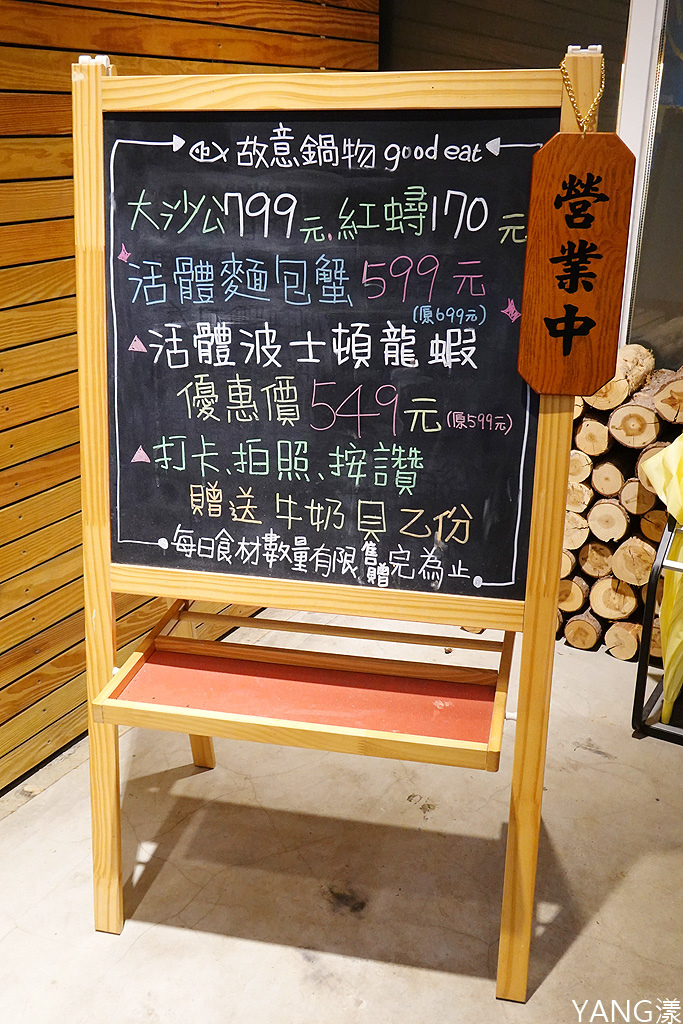 故意鍋物 good eat
大沙公799元.紅蟳170元
活體麵包蟹599元
(原699元)
活體波士頓龍蝦
優惠價549元(原599元)
打卡、拍照、按讚
贈送牛奶貝乙份
每日食材數量有限售贈完為止
營業中
YANG漾